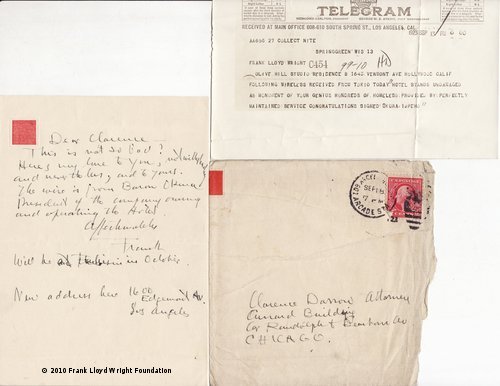 TELEGRAM
RECEIVED AT MAIN OFFICE 608-610 SOUTH SPRING ST., LOS ANGELES, CAL.
27 COLLECT NITE
SPRINGGREEN WIS 13
FRANK LLOYD WRIGHT
OLIVE HILL STUDIO RESIDENCE B 1645 VERMONT AVE HOLLYWOOD CALIF
FOLLOWING WIRELESS RECEIVED FROM TOKIO TODAY HOTEL STANDS UNDAMAGED
AS MONUMENT OF YOUR GENIUS HUNDREDS OF HOMELESS PROVIDED BY PERFECTLY
MAINTAINED SERVICE CONGRATULATIONS SIGNED OKURA IMPEHO
Dear Clarence
This is not so bad?
Here's my love to you,
and nevertheless, and to yours.
The wire is from Baron Okura
President of the company owning
and operating the Hotel
Affectionately
Frank
Will be in October.
New address here 16
Edgemont
Los Angeles
LOS ANGELES
SEP
ARCADE ST
Clarence Darrow Attorney
Building
Cor Randolph & Dearborn
CHICAGO.
© 2010 Frank Lloyd Wright Foundation